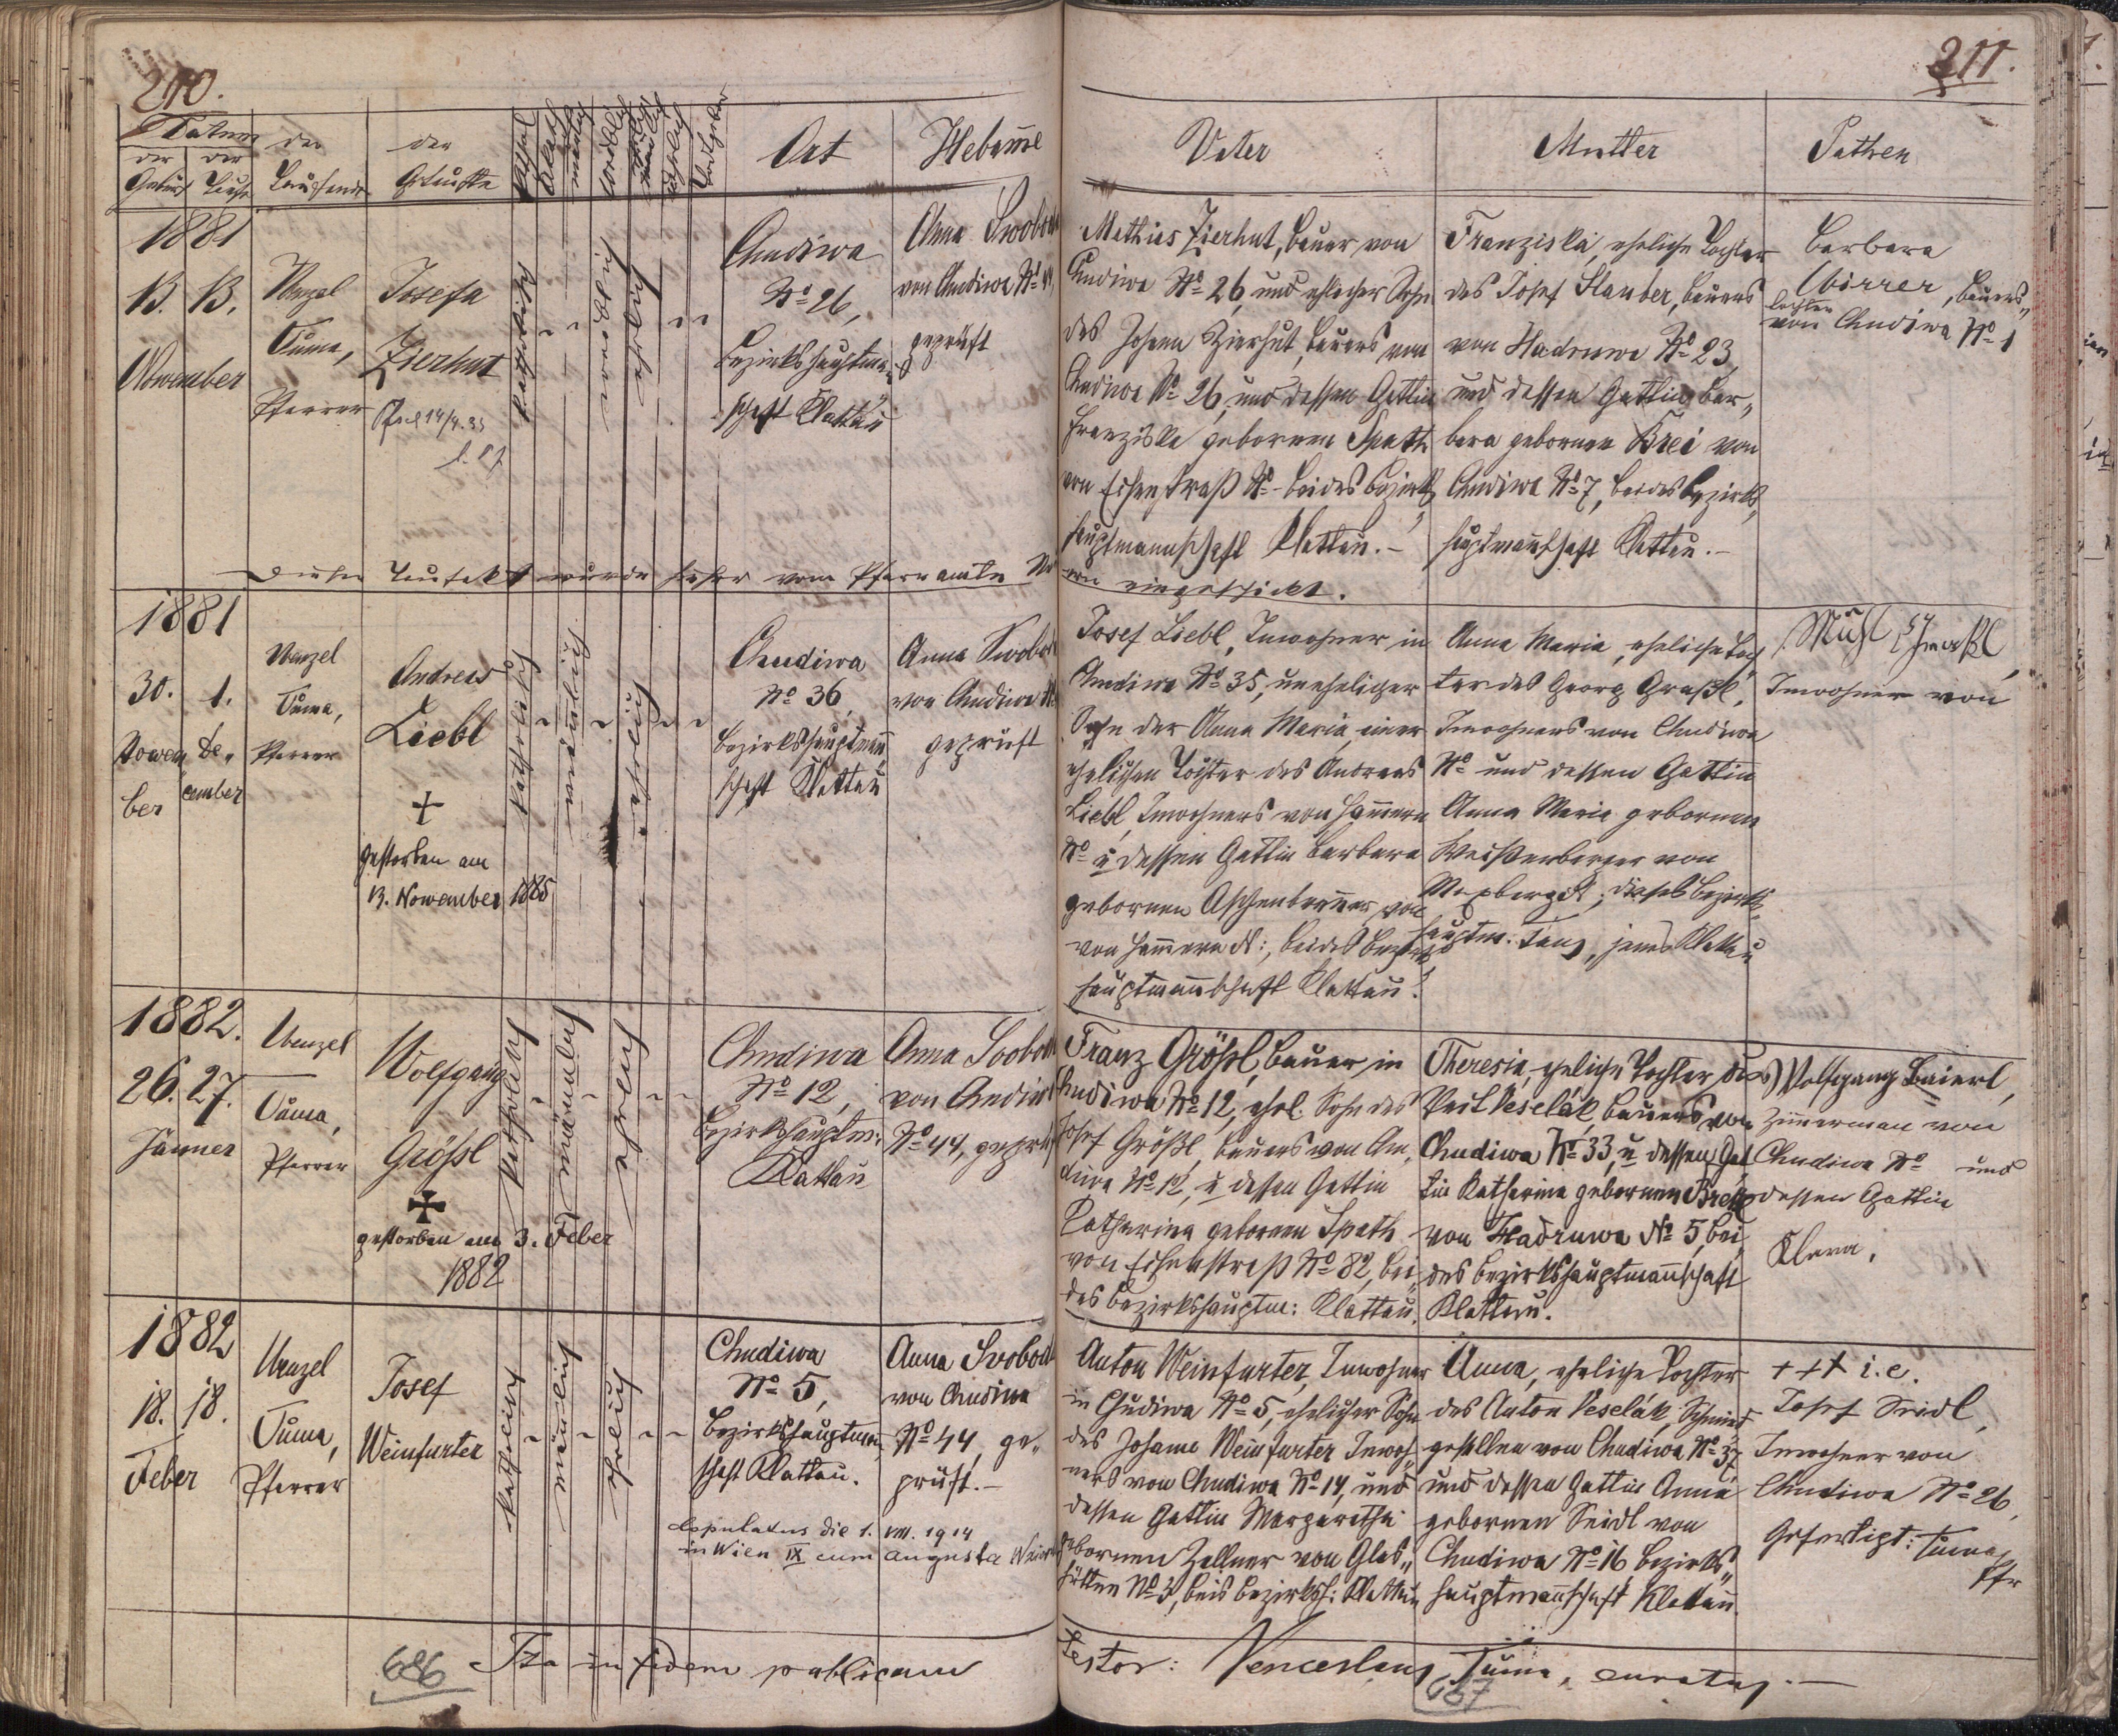 210.
Datum
der der
Geburt Taufe
der
Taufende
der
Getaufte
Ort
Hebame
1881
13. 13.
November
Wenzel
Tuma,
Pfarrer
Josefa
Zierhut
katholisch
Chudiwa
No 26,
Bezirkshauptman-
schaft Klattau
Anna Swoboda
von Chudiwa No 44
geprüft
Dieser Taufakt wurde hieher vom Pfarramte
1881
30. 1.
Novem De-
ber cember
Wenzel
Tuma,
Pfarrer
Andreas
Liebl
+
gestorben am
13. November 1885
katholisch
mänlich
ehelich
Chudiwa
No 36,
Bezirkshauptman-
schaft Klattau
Anna Swoboda
von Chudiwa
geprüft
1882.
26. 27.
Jänner
Wenzel
Tuma,
Pfarrer
Wolfgang
Größl
gestorben am 3. Feber
1882
katholisch
mänlich
ehelich
Chudiwa
No 12,
Bezirkshauptm:
Klattau
Anna Svoboda
von Chudiwa
No 44, geprüft
1882
18. 18.
Feber
Wenzel
Tuma,
Pfarrer
Josef
Weinfurter
katholisch
mänlich
ehelich
Chudiwa
No 5,
Bezirkshauptman-
schaft Klattau.
Anna Svoboda
von Chudiwa
No 44, ge-
prüft.-
Copulatus die 1. VIII. 1914
in Wien IX cum Augusta
686
Ita in fidem publicam
211.
Vater
Mutter
Pathen
Mathias Zierhut, Bauer von
Chudiwa No 26, und ehelicher Sohn
des Johann Zierhut, Bauers von
Chudiwa No 26, und dessen Gattin
Franziska gebornen Spath
von Eisenstraß No - beides Bezirks
hauptmannschaft Klattau.-
eingeschickt.
Franziska, eheliche Tochter
des Josef Stauber, Bauers
von Hadruwa No 23,
und dessen Gattin Bar-
bara gebornen Brei von
Chudiwa No 7, beides Bezirks-
hauptmannschaft Klattau.-
Barbara
, Bauers-
tochter
von Chudiwa No 1
Josef Liebl, Inwohner in
Chudiwa No 35, unehelicher
Sohn der Anna Maria, einer
ehelichen Tochter des Andreas
Liebl, Inwohners von Hammern
No u dessen Gattin Barbara
gebornen Aschenbrenner von
von Hammern N:, beides Bezirks
hauptmannschaft Klattau.
Anna Maria, eheliche Toch
ter des Georg Graßl,
Inwohners von Chudiwa
No und dessen Gattin
Anna Maria gebornen
Weißenberger von
Maxberg, dieses Bezirks-
hauptm. Taus, jenes Klattau
Inwohner von
Franz Größl, Bauer in
Chudiwa No 12, ehel. Sohn des
Josef Größl, Bauers von Chu-
diwa No 12, u dessen Gattin
Katharina gebornen Spath
von Eisenstraß No 82, bei-
des Bezirkshauptm: Klattau.
Theresia, eheliche Tochter des
Veit Veselák, Bauers von
Chudiwa No 33, u dessen Gat
tin Katharina gebornen Brei
von Hadruwa No 5, bei
des Bezirkshauptmannschaft
Klattau.
Wolfgang Baierl,
Zimmerman von
Chudiwa No und
dessen Gattin
Klara.
Anton Weinfurter, Inwohner
in Chudiwa No 5, ehelicher Sohn
des Johann Weinfurter Inwoh-
ners von Chudiwa No 14, und
dessen Gattin Margaretha
gebornen Zellner von Glas-
hütten No 3, beides Bezirksh: Klattau
Anna, eheliche Tochter
des Anton Veselák, Schmied
gesellen von Chudiwa No 37
und dessen Gattin Anna
gebornen Seidl von
Chudiwa No 16 Bezirks-
hauptmannschaft Klattau.
+++ i.e.
Josef Seidl,
Inwohner von
Chudiwa No 26,
Gefertigt: Tuma
Pfr
testor: Venceslaus Tuma, curatus.-
687